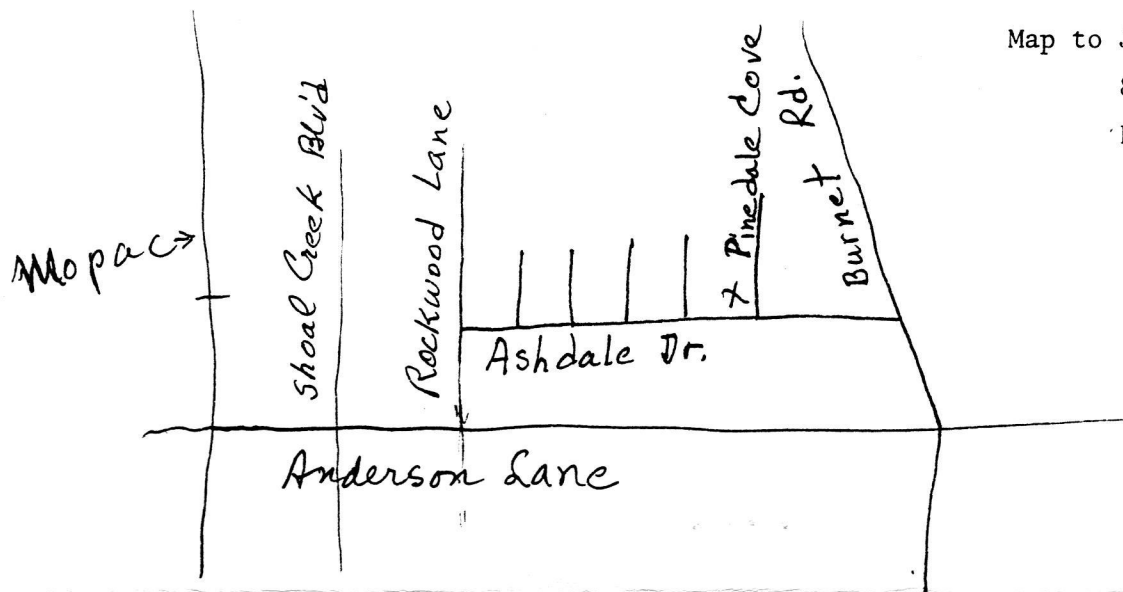 Map to
Mopac
Shoal Creek Blv'd
Rockwood Lane
Pinedale Cove
X
Burnet Rd.
Ashdale Dr.
Anderson Lane